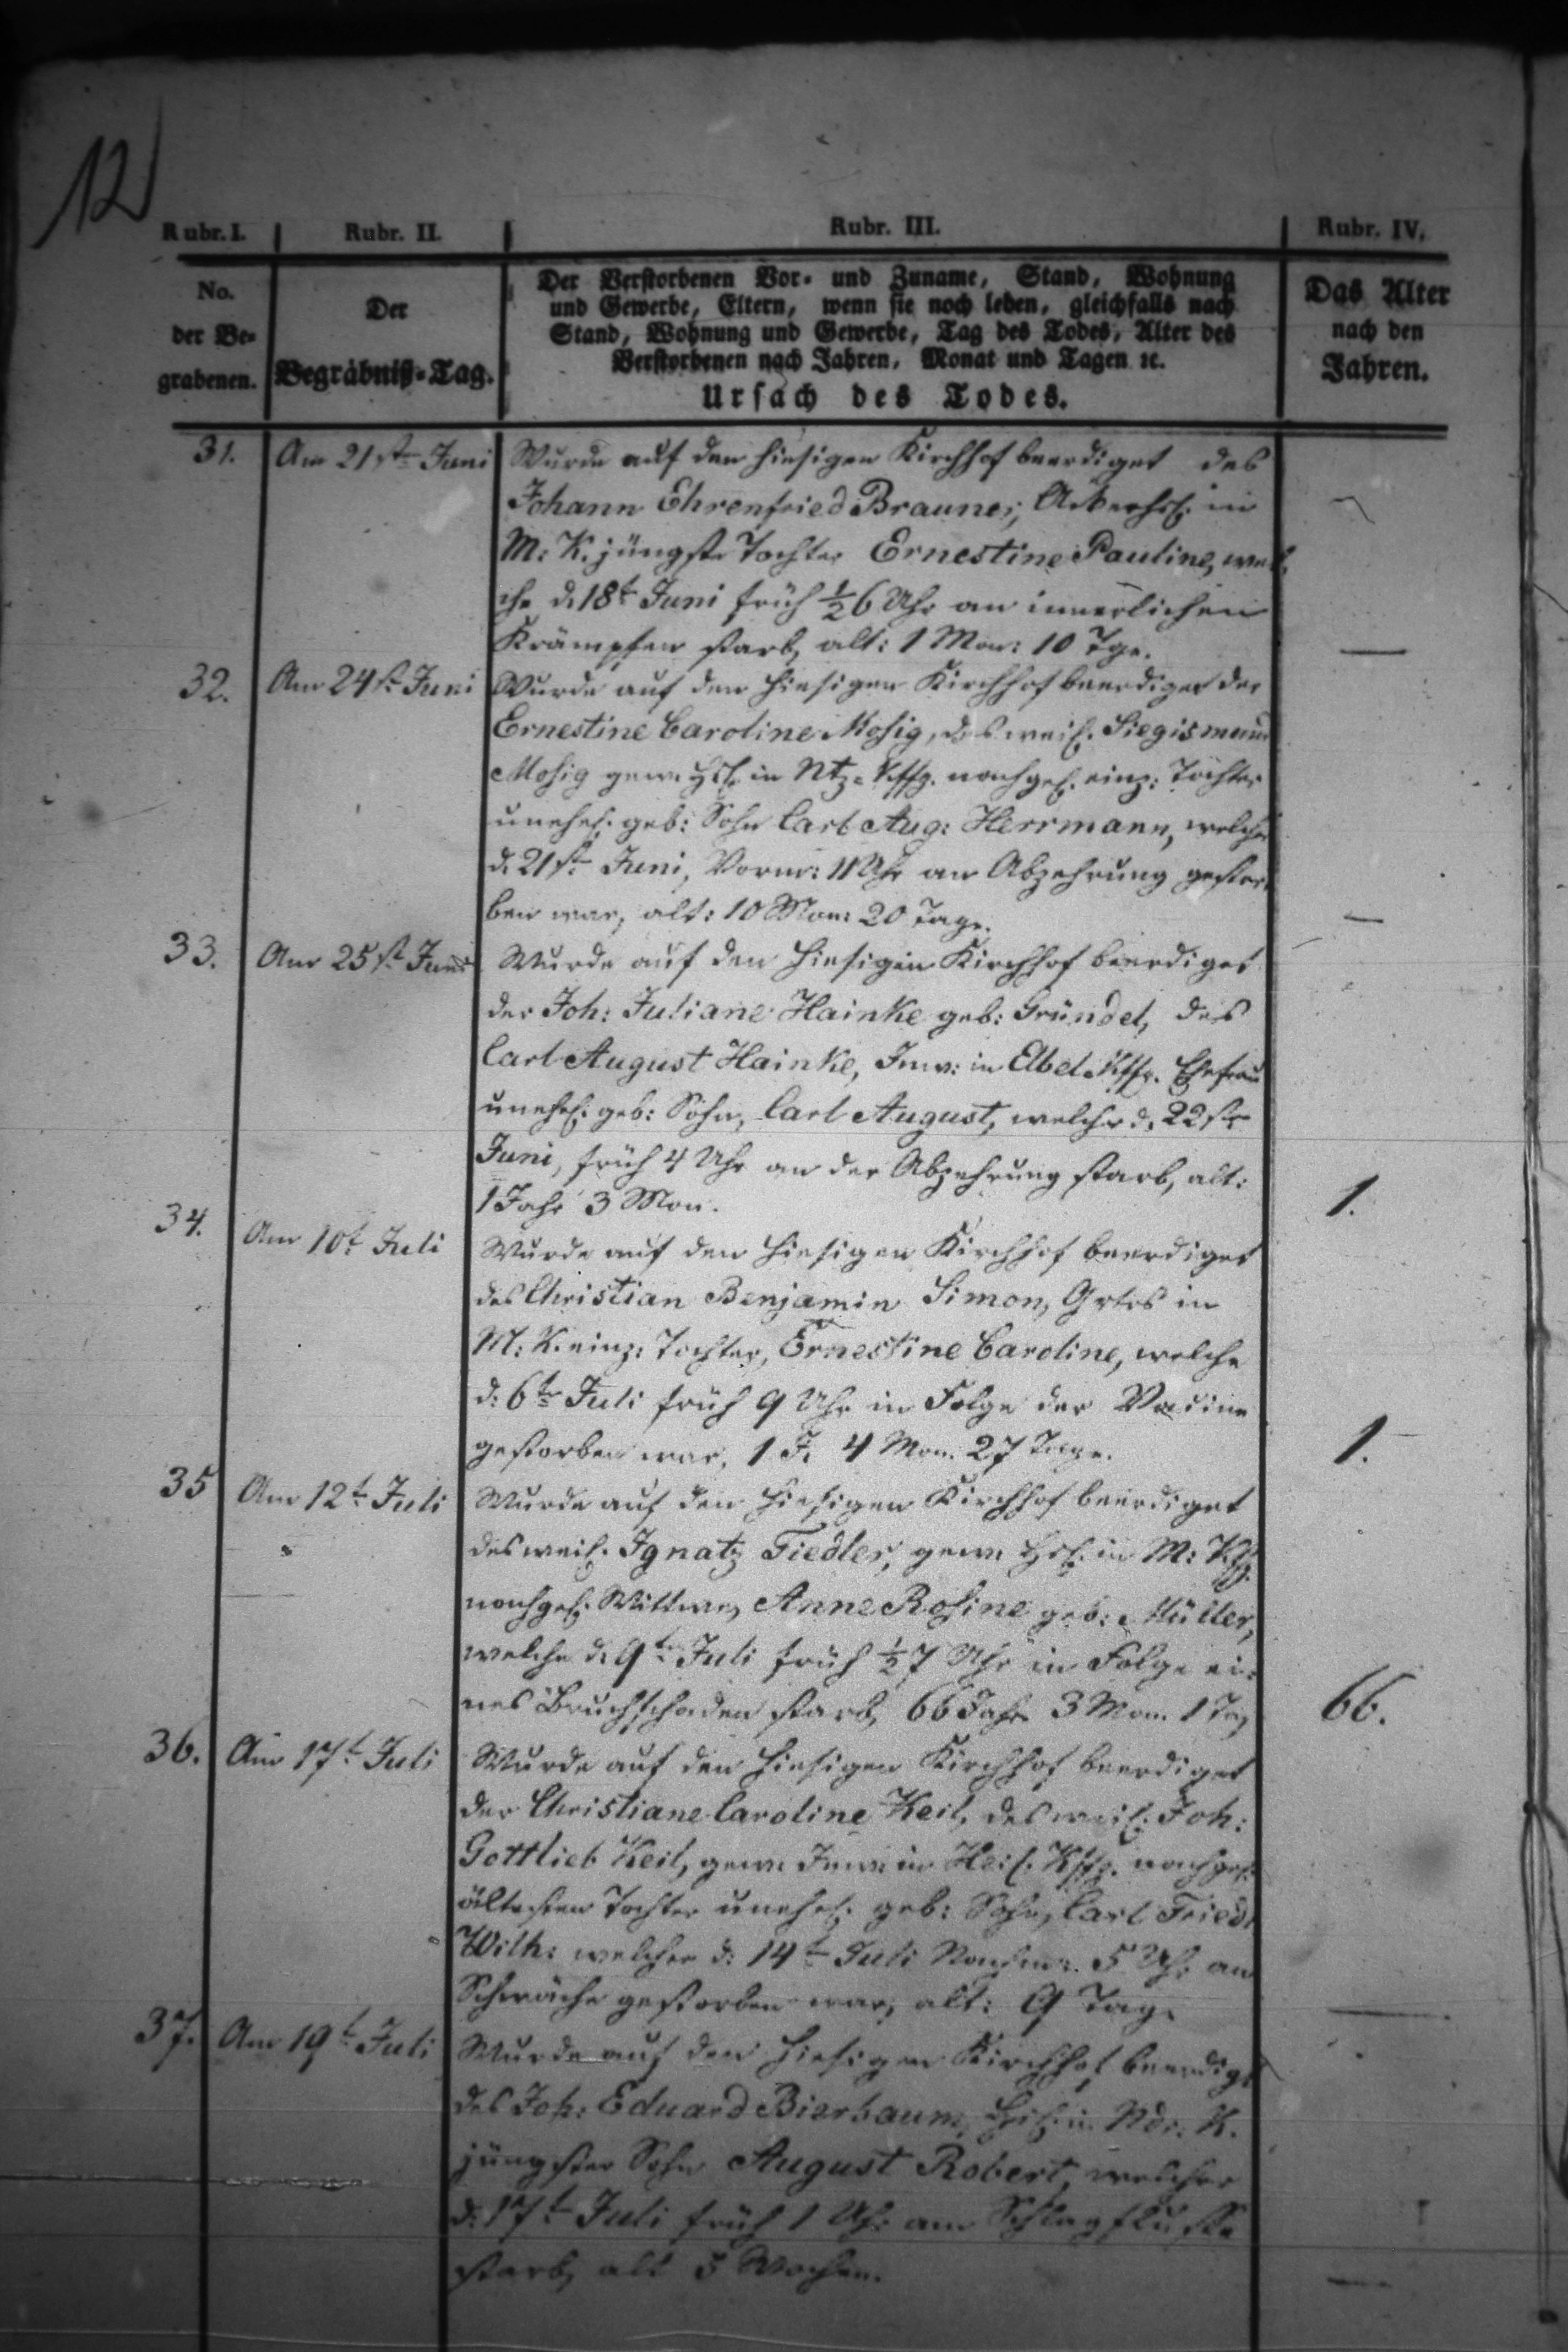 12
Rubr. I. Rubr. II. Rubr. III. Rubr. IV.
No. der Be-grabenen.
Der Begräbniß-Tag.
Der Verstorbenen Vor- und Zuname, Stand, Wohnung
und Gewerbe, Eltern, wenn sie noch leben, gleichfalls nach
Stand, Wohnung und Gewerbe, Tag des Todes, Alter des
Verstorbenen nach Jahren, Monat und Tagen ꝛc.
Ursach des Todes.
Das Alter
nach den
Jahren.
31. Am 21st Juni Wurde auf den hiesigen Kirchhof beerdiget des
Johann Ehrenfried Brauner, in
M: K. jüngste Tochter Ernestine Pauline, wel-
che d. 18t Juni früh ½6 Uhr an innerlichen
Krämpfen starb, alt: 1 Mon: 10 Tge. —
32. Am 24st Juni Wurde auf den hiesigen Kirchhof beerdiget der
Ernestine Caroline Mosig, des weil. Siegismund
Mosig gew. Hsl. in Ntz-Kffg. nachgel. einz: Tochter
unehel. geb: Sohn Carl Aug: Herrmann, welcher
d. 21st Juni, Vorm: 11 Uhr an Abzehrung gestor-
ben war, alt: 10 Mon: 20 Tage. —
33. Am 25st Juni Wurde auf den hiesigen Kirchhof beerdiget
der Joh: Juliane Hainke geb: Gründel, des
Carl August Hainke, Inw: in Elbel Kffg. Ehefrau
unehel. geb: Sohn, Carl August, welcher d. 22st
Juni, früh 4 Uhr an der Abzehrung starb, alt:
1 Jahr 3 Mon. 1.
34. Am 10t Juli Wurde auf den hiesigen Kirchhof beerdiget
des Christian Benjamin Simon, Grtrs in
M: K. einz: Tochter, Ernestine Caroline, welche
d: 6t Juli früh 9 Uhr in Folge der Vacine
gestorben war, 1 J. 4 Mon. 27 Tage. 1.
35 Am 12t Juli Wurde auf den hiesigen Kirchhof beerdiget
des weil. Ignatz Fiedler, gew. Hsl. in M: Kffg.
nachgel. Wittwe, Anne Rosine geb: Müller,
welche d. 9t Juli früh ½7 Uhr in Folge ei-
nes Bruchschaden starb, 66 Jahr 3 Mon. 1 Tag 66.
36. Am 17t Juli Wurde auf den hiesigen Kirchhof beerdiget
der Christiane Caroline Keil, des weil: Joh:
Gottlieb Keil, gew. Inw. in Heil. Kffg. nachgel.
ältesten Tochter unehel. geb: Sohn, Carl Friedr
Wilh: welcher d: 14t Juli Nachm. 5 Uhr an
Schwäche gestorben war, alt: 9 Tage —
37. Am 19t Juli Wurde auf den hiesigen Kirchhof beerdigt
des Joh: Eduard Bierbaum, Hsl. in Ndr. K.
jüngster Sohn August Robert, welcher
d. 17t Juli früh 1 Uhr am Schlagflusse
starb, alt 5 Wochen. —